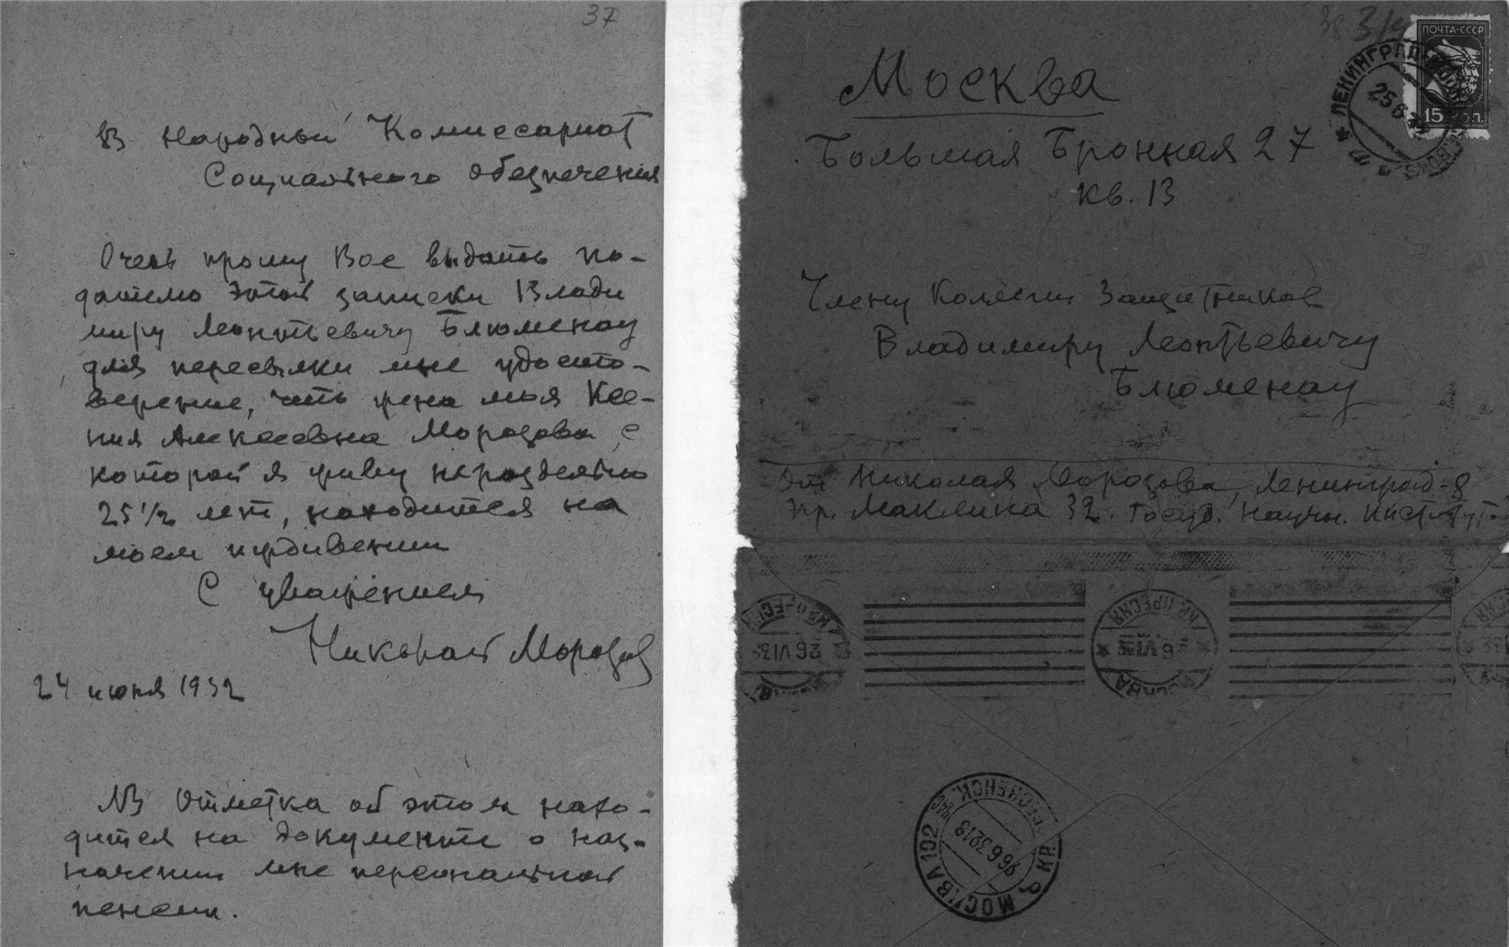 37
В Народный Комиссариат
Социального обезпечения
Очень прошу Вас выдать по-
дателю этой записки Влади
миру Леонтьевичу Блюменау
для пересылки мне удосто-
верение, что жена моя Ксе-
ния Алексеевна Морозова, с
которой я живу нераздельно
25 1/2 лет, находится на
моем иждивении
С уважением
Николай Морозов
24 июня 1932
NB Отметка об этом нахо-
дится на документе о наз-
начении мне персональной
пенсии.
38
ПОЧТА·СССР
15 коп.
ЛЕНИНГРАД
25 6 32
Москва
Большая Бронная 27
кв. 13
Члену Колегии Защитников
Владимиру Леонтьевичу
Блюменау
От Николая Морозова, Ленинград-8
Пр. Маклина 32. Госуд. Научн. Институт.
26 VI 32
КР. ПРЕСНЯ
МОСКВА
МОСКВА 102
26 6 32 18